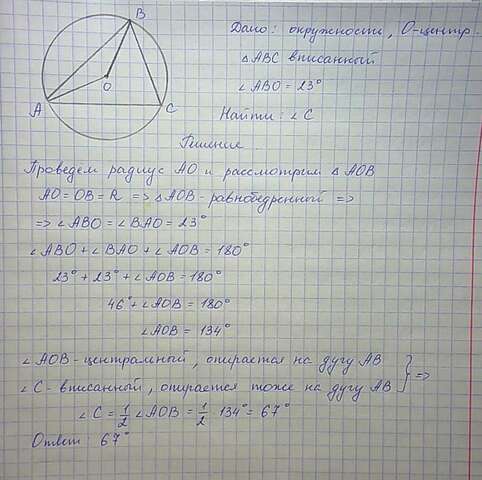 Дано: окружность, О-центр.
△ABC вписанный
∠ABO = 23°
Найти: ∠C
B
O
A
C
Решение.
Проведём радиус AO и рассмотрим △AOB
AO = OB = R => △AOB - равнобедренный =>
=> ∠ABO = ∠BAO = 23°
∠ABO + ∠BAO + ∠AOB = 180°
23° + 23° + ∠AOB = 180°
46° + ∠AOB = 180°
∠AOB = 134°
∠AOB - центральный, опирается на дугу AB
∠C - вписанный, опирается тоже на дугу AB } =>
∠C = 1/2 ∠AOB = 1/2 · 134° = 67°
Ответ: 67°